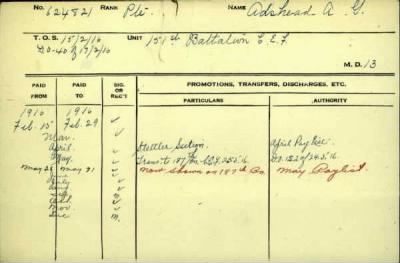 No. 624821 RANK Pte. NAME Adshead A. G.
T.O.S. 15/2/16 UNIT 151st Battalion C.E.F.
D.O. 40 of 17/2/16
M.D. 13
PAID FROM PAID TO SIG. OR REC'T PROMOTIONS, TRANSFERS, DISCHARGES, ETC.
PARTICULARS AUTHORITY
1916 1916
Feb. 15 Feb. 29 ✓
Mar. ✓
April ✓ Stettler Section. April Pay List
May. ✓ Trans. to 187/Bn. C.E.F. 25.5.16. D.O. 152
May 26 May 31 ✓ Now shown on 187th Bn. May Paylist.
June ✓
July ✓
Aug ✓
Sep ✓
Oct. ✓
Nov. ✓
Dec M.